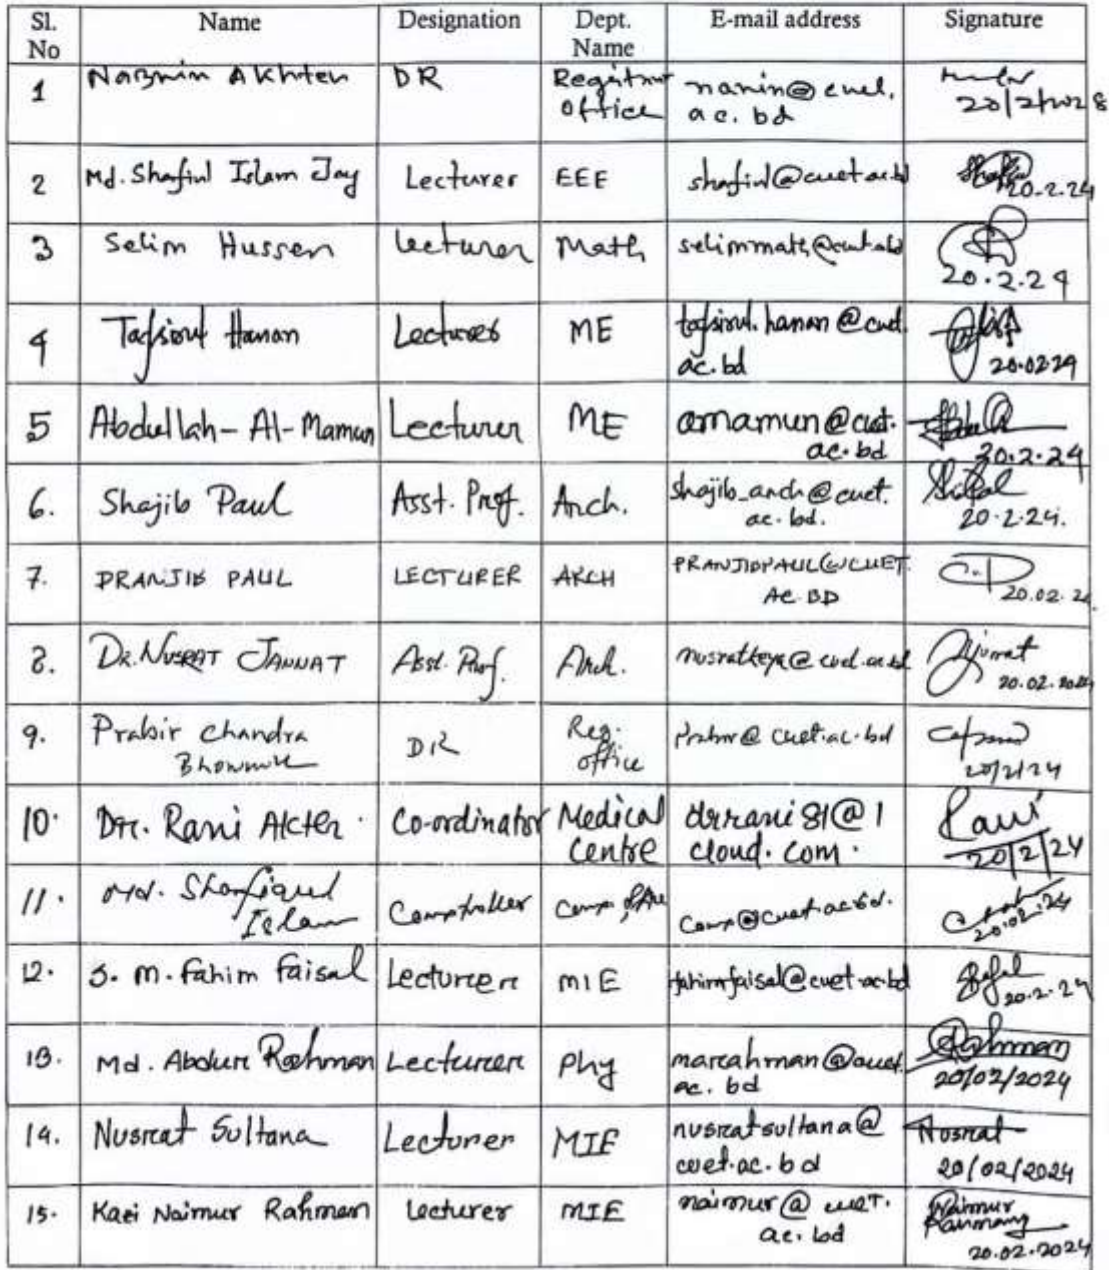 Sl. No Name Designation Dept. Name E-mail address Signature
1 Naznin Akhter DR Registrar office nanin@cuet.ac.bd 20/2/2028
2 Md. Shafiul Islam Jay Lecturer EEE shafiul@cuet.ac.bd 20-2-24
3 Selim Hussen Lecturer Math selimmath@cuet.ac.bd 20.2.24
4 Tafsirul Hanan Lecturer ME tafsirul.hanan@cuet.ac.bd 20.02.24
5 Abdullah-Al-Mamun Lecturer ME amamun@cuet.ac.bd 20.2.24
6. Shajib Paul Asst. Prof. Arch. shajib_arch@cuet.ac.bd. 20.2.24.
7. PRANJIB PAUL LECTURER ARCH PRANJIBPAUL@CUET.AC.BD 20.02.24
8. DR. NUSRAT JANNAT Asst. Prof. Arch. nusratkeya@cuet.ac.bd 20.02.2024
9. Prabir Chandra Bhowmik DR Reg. office prabir@cuet.ac.bd 20/2/24
10. Dr. Rani Akter. Co-ordinator Medical Centre drrani81@icloud.com. Rani 20/2/24
11. Md. Shafiqul Islam Comptroller comp@cuet.ac.bd. 20.02.24
12. S. M. Fahim Faisal Lecturer MIE fahimfaisal@cuet.ac.bd 20.2.24
13. Md. Abdur Rahman Lecturer Phy marahman@cuet.ac.bd Rahman 20/02/2024
14. Nusrat Sultana Lecturer MIE nusratsultana@cuet.ac.bd Nusrat 20/02/2024
15. Kazi Naimur Rahman Lecturer MIE naimur@cuet.ac.bd Naimur Rahman 20.02.2024